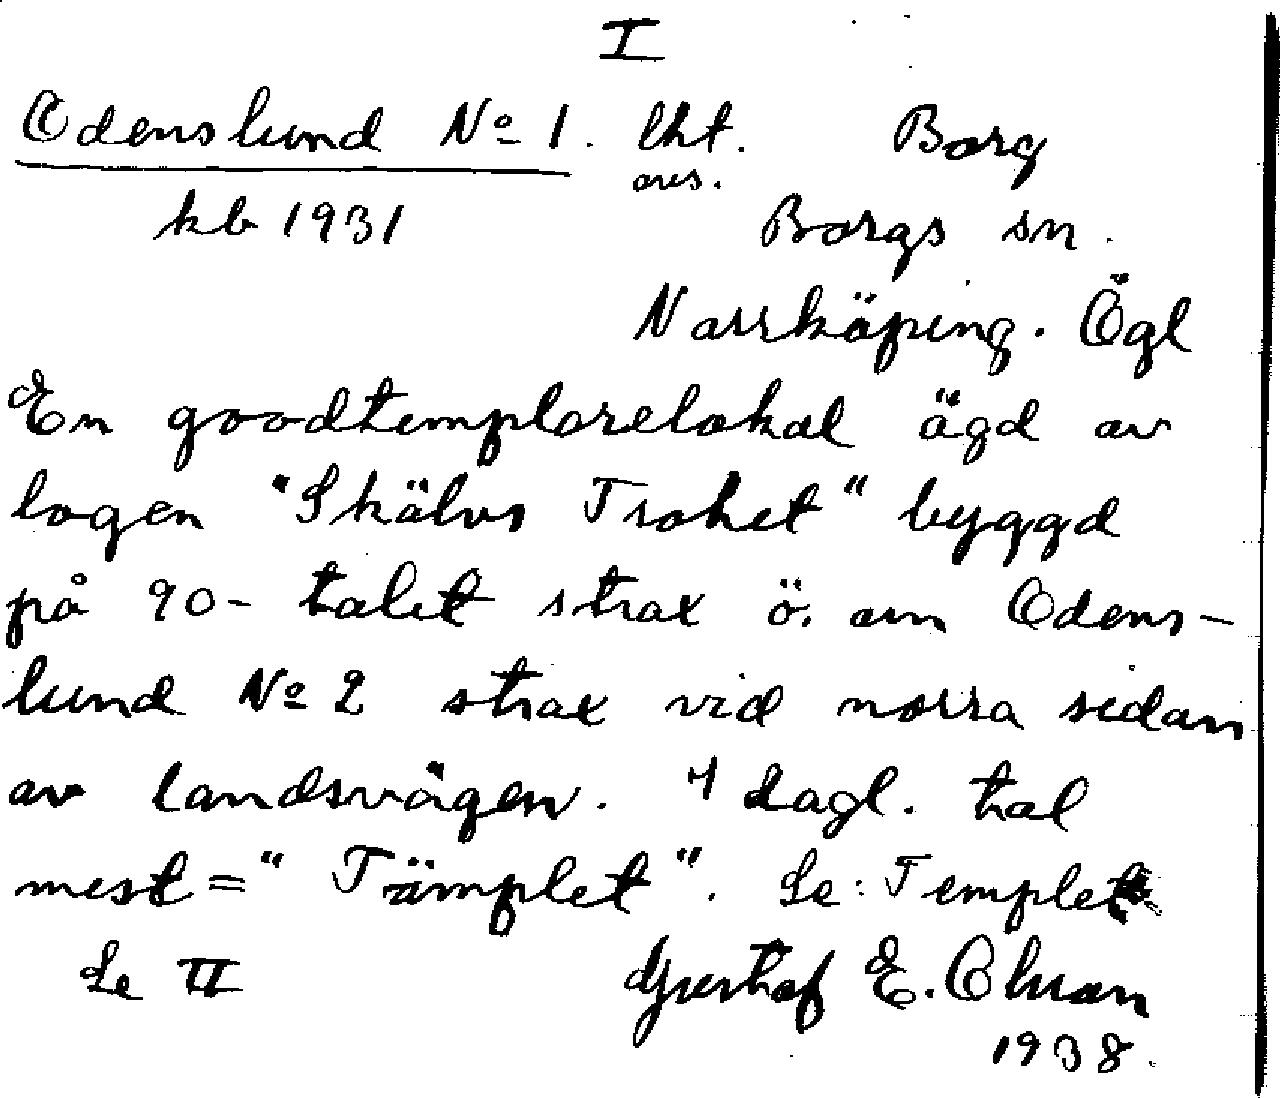 I
Odenslund No 1. lht. Borg
avs.
kb 1931 Borgs sn.
Norrköping. Ögl
En goodtemplorelokal ägd av
logen "Skälvs Trohet" byggd
på 90-talet strax ö. om Odens-
lund No 2 strax vid norra sidan
av landsvägen. I dagl. tal
mest = "Tämplet". Se: Templet
Se II Gustaf E. Olson
1938.